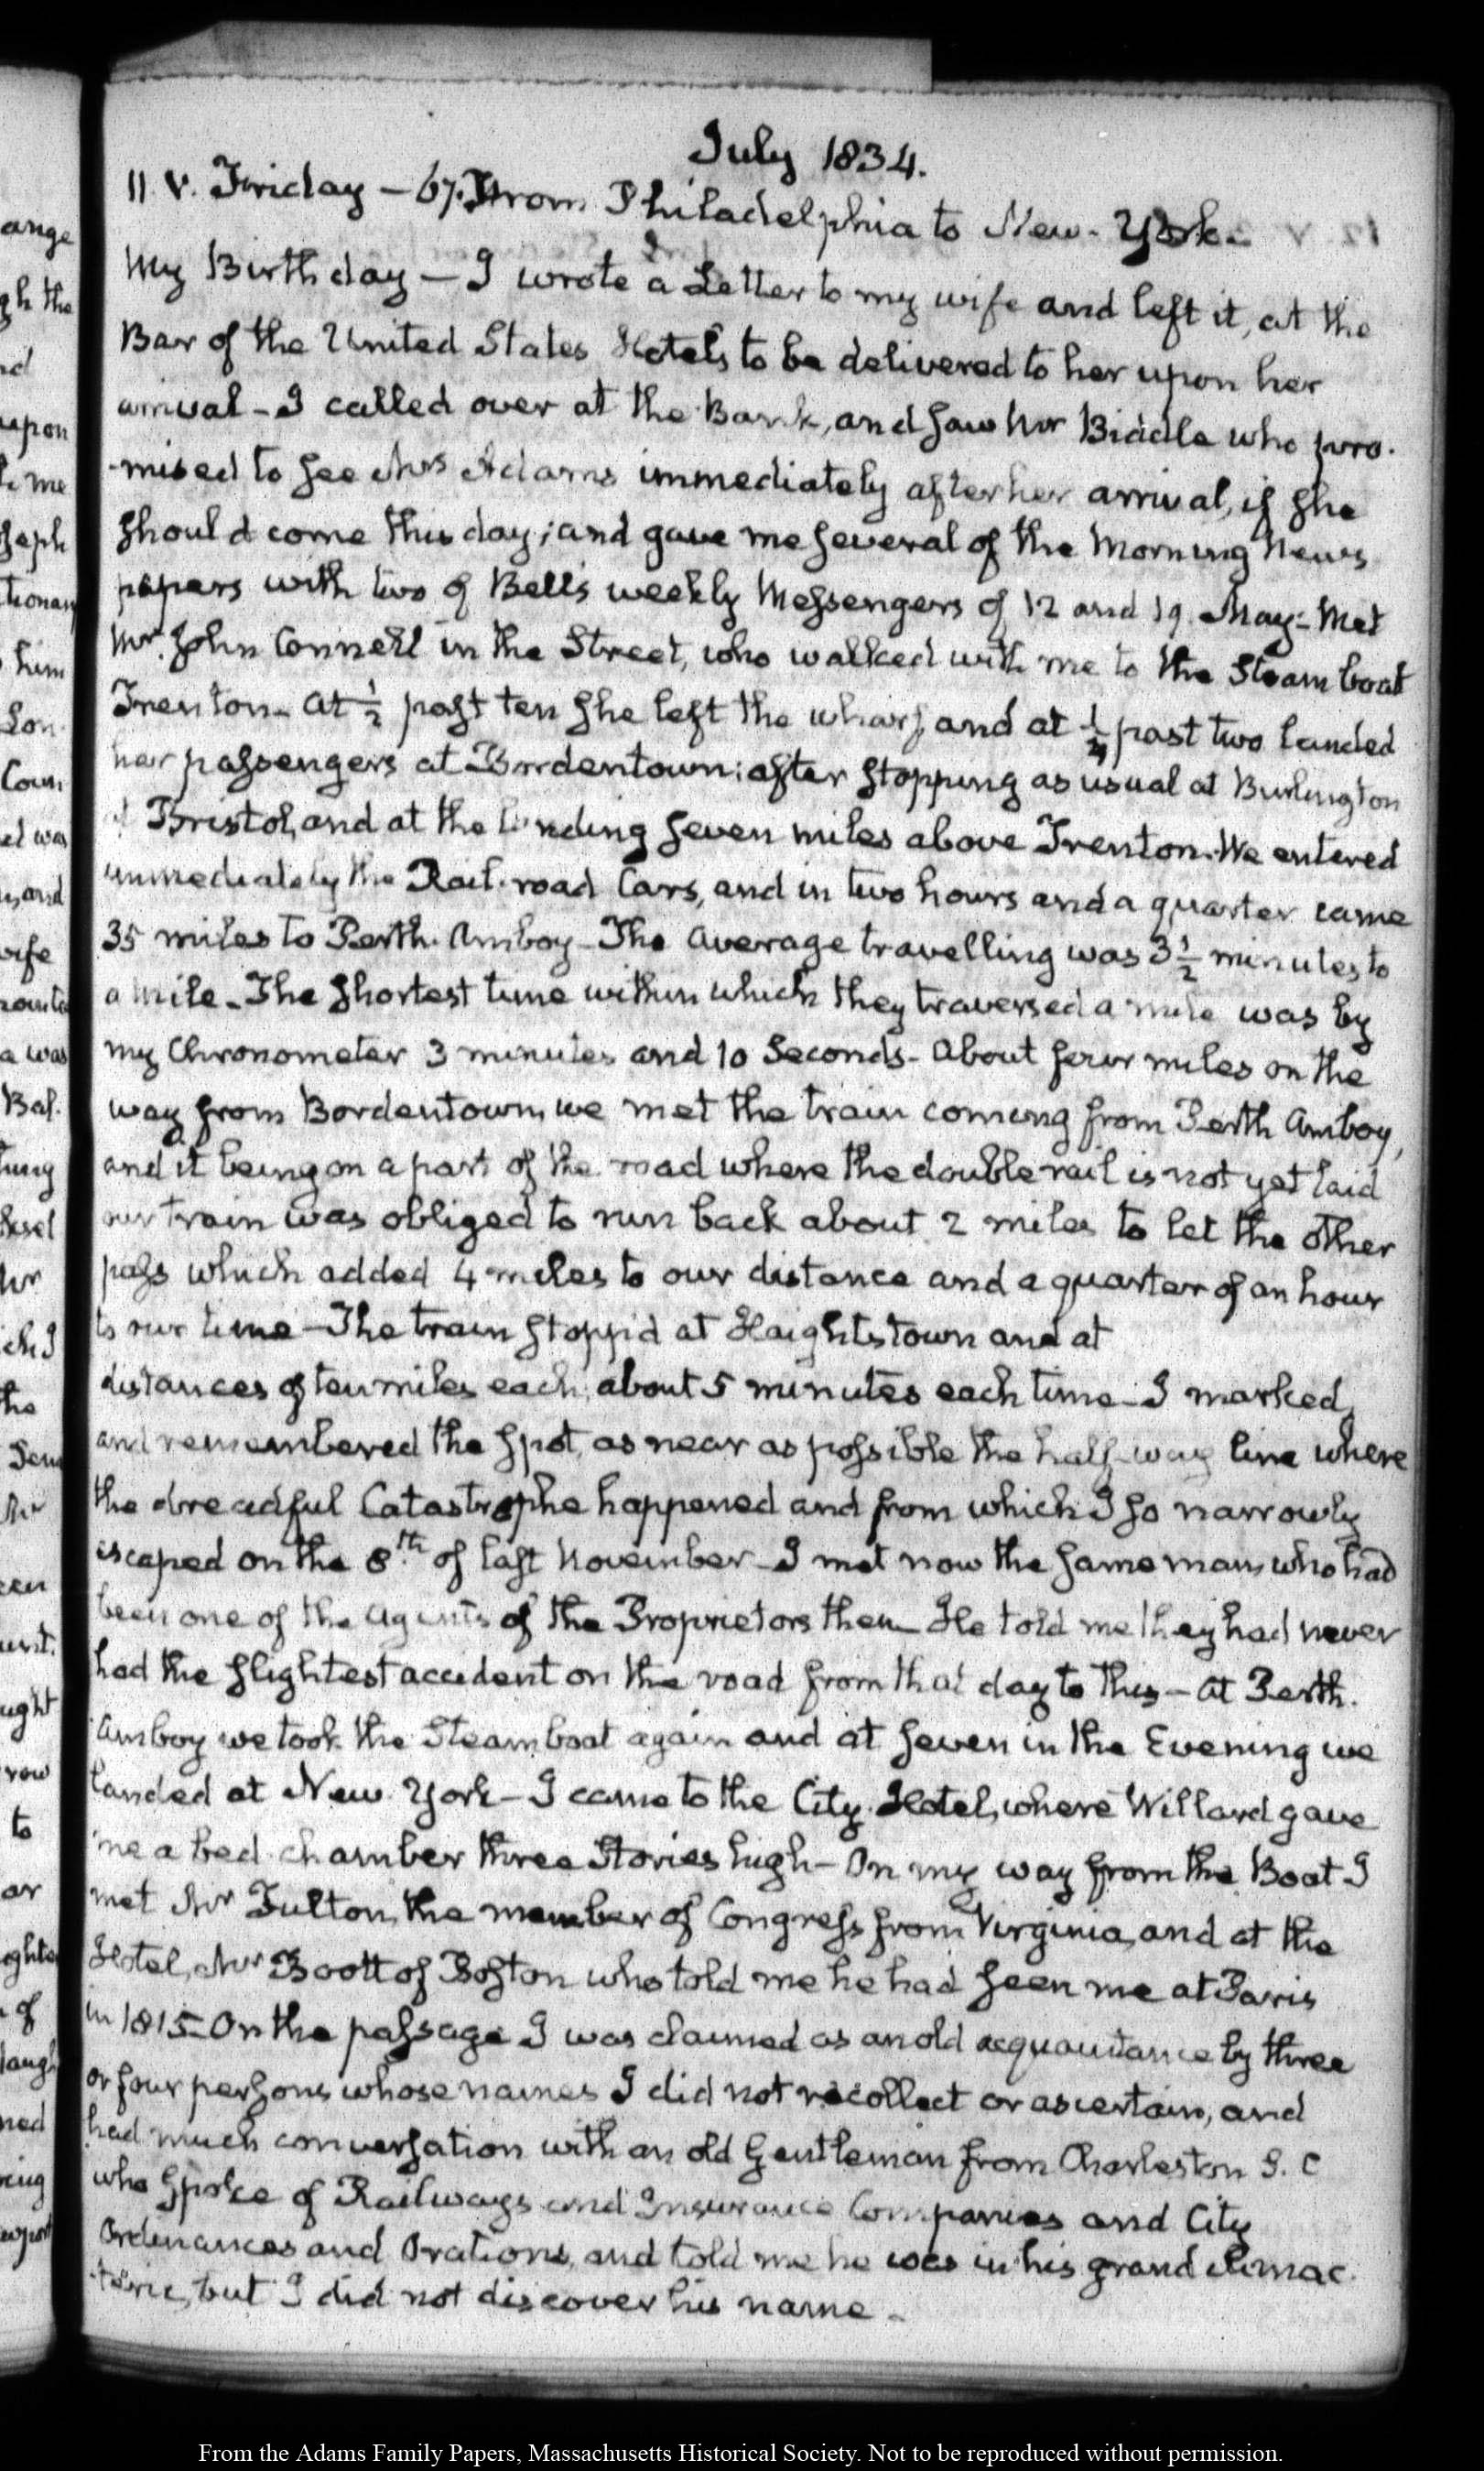 July 1834.
11 V. Friday – 67. From Philadelphia to New-York.
My Birth day – I wrote a Letter to my wife and left it, at the
Bar of the United States Hotel, to be delivered to her upon her
arrival – I called over at the Bank, and saw Mr Biddle who pro-
-mised to see Mrs Adams immediately after her arrival, if she
should come this day; and gave me several of the Morning News
papers with two of Bell's weekly Messengers of 12 and 19 May – Met
Mr John Connell in the Street, who walked with me to the Steam boat
Trenton – At ½ past ten she left the wharf, and at ¼ past two landed
her passengers at Bordentown; after stopping as usual at Burlington
at Bristol, and at the landing seven miles above Trenton. We entered
immediately the Rail-road Cars, and in two hours and a quarter came
35 miles to Perth-Amboy – The average travelling was 3½ minutes to
a Mile – The shortest time within which they traversed a mile was by
my Chronometer 3 minutes and 10 Seconds – About four miles on the
way from Bordentown, we met the train coming from Perth Amboy,
and it being on a part of the road where the double rail is not yet laid
our train was obliged to run back about 2 miles to let the other
pass which added 4 miles to our distance and a quarter of an hour
to our time – The train stopp'd at Haightstown and at
distances of ten miles each, about 5 minutes each time – I marked,
and remembered the spot, as near as possible the half-way line where
the dreadful Catastrophe happened and from which I so narrowly
escaped on the 8th of last November – I met now the same man, who had
been one of the Agents of the Proprietors then – He told me they had never
had the slightest accident on the road from that day to this – At Perth-
Amboy we took the Steam boat again and at seven in the Evening we
landed at New-York – I came to the City Hotel, where Willard gave
me a bed-chamber three Stories high – On my way from the Boat I
met Mr Fulton, the member of Congress from Virginia, and at the
Hotel, Mr Boott of Boston who told me he had seen me at Paris
in 1815 – On the passage I was claimed as an old acquaintance by three
or four persons whose names I did not recollect or ascertain, and
had much conversation with an old Gentleman from Charleston S. C
who spoke of Railways and Insurance Companies and City
Ordinances and Orations, and told me he was in his grand climac-
-teric, but I did not discover his name –
ange
gh the
upon
him
Coun
vife
a was
Bal.
ich I
the
Mr
ught
row
to
or
of
ned
From the Adams Family Papers, Massachusetts Historical Society. Not to be reproduced without permission.